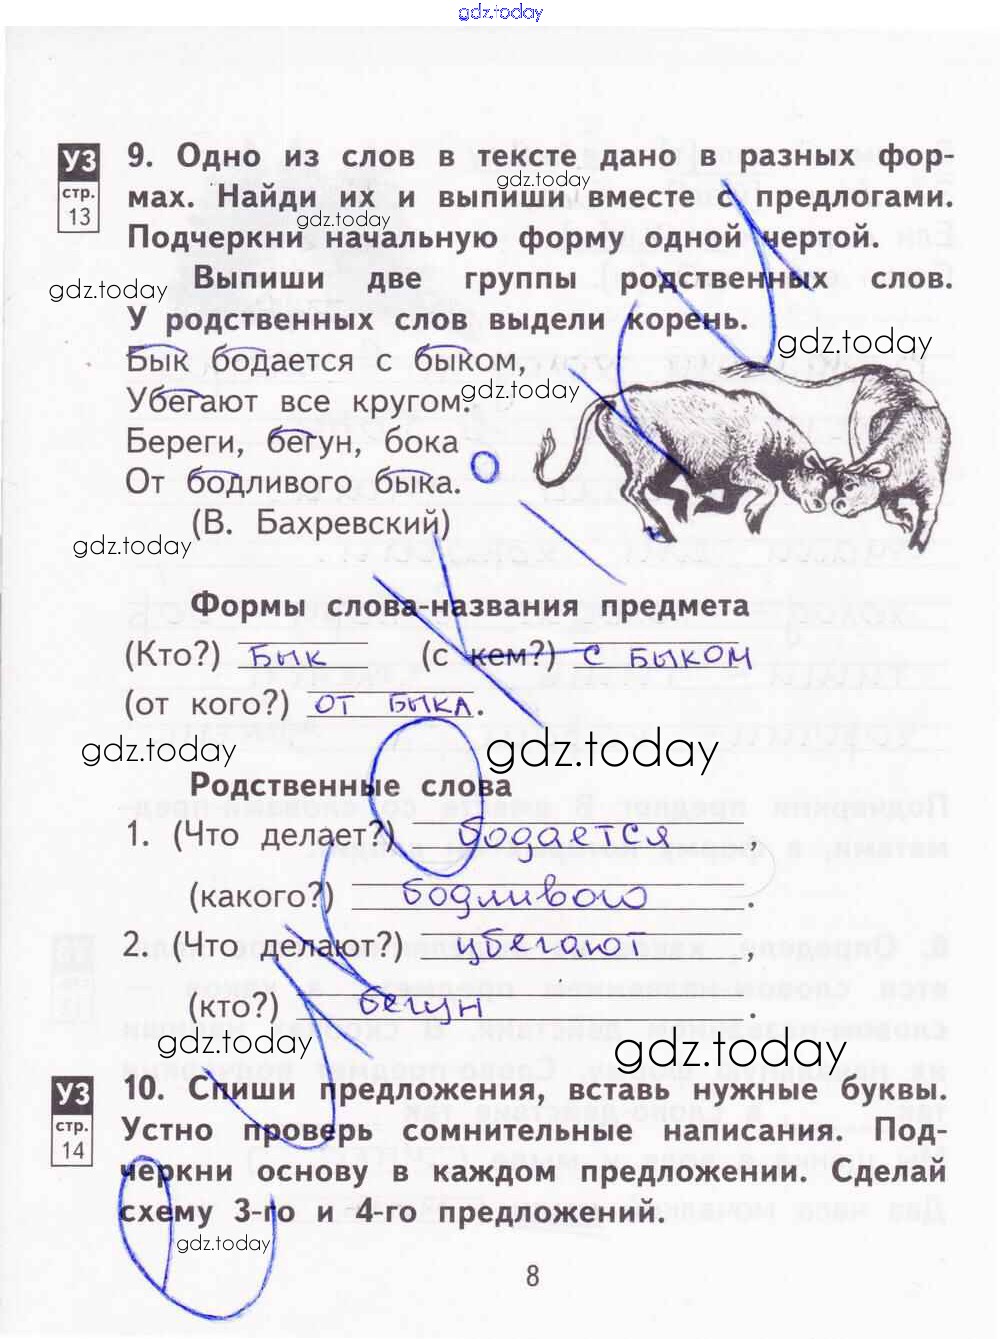 gdz.today
УЗ
стр.
13
9. Одно из слов в тексте дано в разных фор-
мах. Найди их и выпиши вместе с предлогами.
Подчеркни начальную форму одной чертой.
Выпиши две группы родственных слов.
У родственных слов выдели корень.
Бык бодается с быком,
Убегают все кругом.
Береги, бегун, бока
От бодливого быка.
(В. Бахревский)
Формы слова-названия предмета
(Кто?) бык (с кем?) с быком
(от кого?) от быка.
Родственные слова
1. (Что делает?) бодается,
(какого?) бодливого.
2. (Что делают?) убегают,
(кто?) бегун.
УЗ
стр.
14
10. Спиши предложения, вставь нужные буквы.
Устно проверь сомнительные написания. Под-
черкни основу в каждом предложении. Сделай
схему 3-го и 4-го предложений.
8
gdz.today
gdz.today
gdz.today
gdz.today
gdz.today
gdz.today
gdz.today
gdz.today
gdz.today
gdz.today
gdz.today